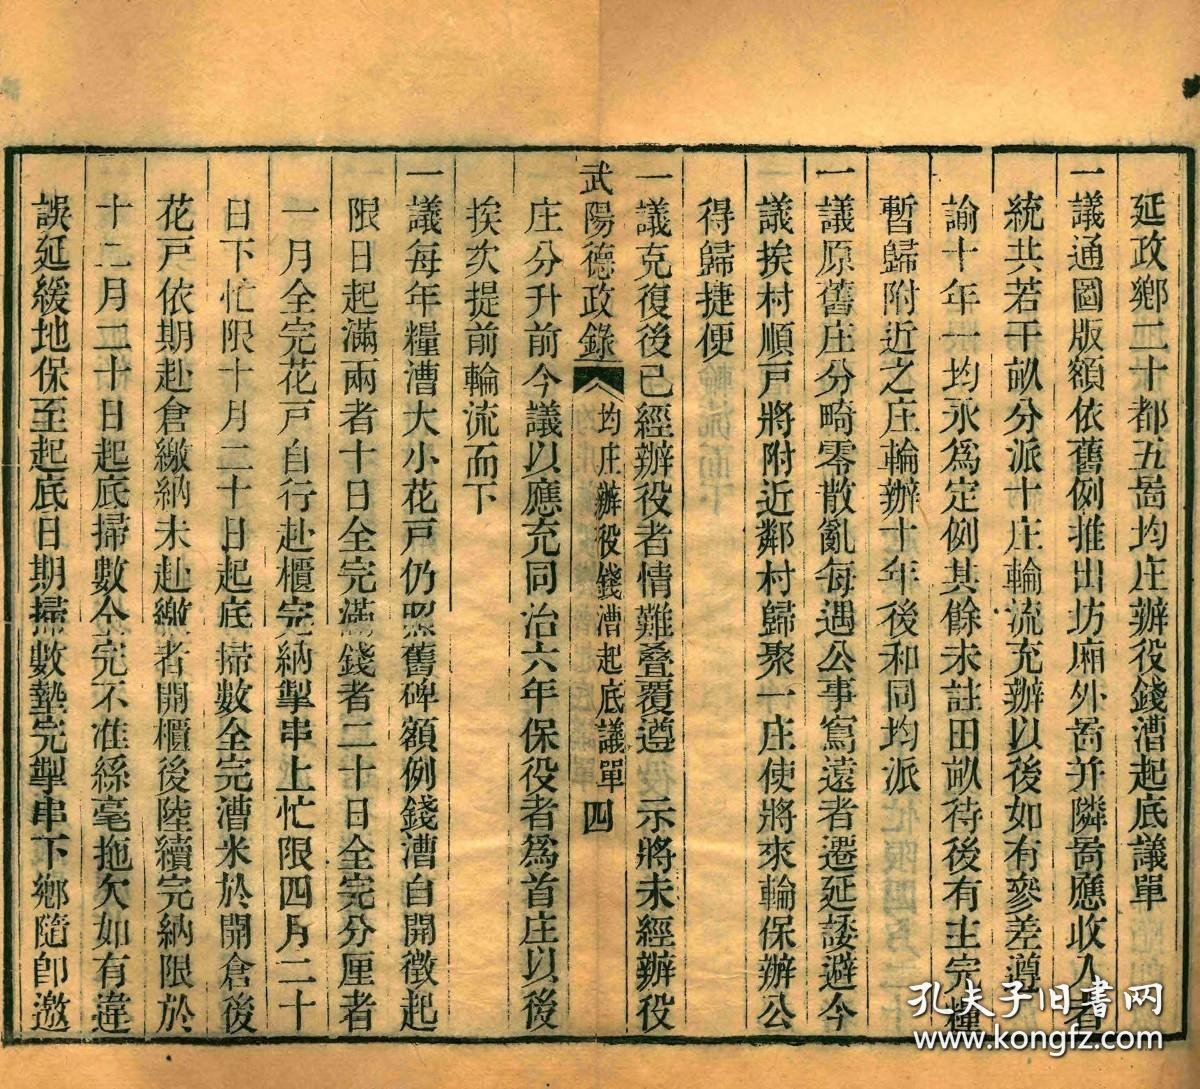 延政鄉二十都五啚均庄辦役錢漕起底議單
一議通圖版額依舊例推出坊廂外啚并隣啚應收入者
統共若干畝分派十庄輪流充辦以後如有參差遵
諭十年一均永爲定例其餘未註田畝待後有主完糧
暫歸附近之庄輪辦十年後和同均派
一議原舊庄分畸零散亂每遇公事寫遠者遷延諉避今
議挨村順戸將附近鄰村歸聚一庄使將來輪保辦公
得歸捷便
一議克復後已經辦役者情難叠覆遵 示將未經辦役
武陽德政錄 均庄辦役錢漕起底議單 四
庄分升前今議以應充同治六年保役者爲首庄以後
挨次提前輪流而下
一議每年糧漕大小花戸仍照舊碑額例錢漕自開徵起
限日起滿兩者十日全完滿錢者二十日全完分厘者
一月全完花戸自行赴櫃完納掣串上忙限四月二十
日下忙限十月二十日起底掃數全完漕米於開倉後
花戸依期赴倉繳納未赴繳者開櫃後陸續完納限於
十二月二十日起底掃數全完不准絲毫拖欠如有違
誤延緩地保至起底日期掃數墊完掣串下鄉隨卽邀
孔夫子旧書网
www.kongfz.com